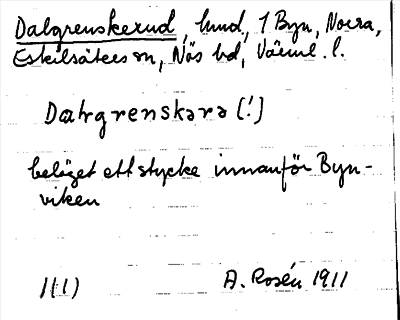 Dalgrenskerud, lund, 1 Byn, Norra,
Eskilsäters sn, Näs hd, Värml. l.
Dahrgrenskəra (!)
beläget ett stycke innanför Byn-
viken
1(1) A. Rosén 1911